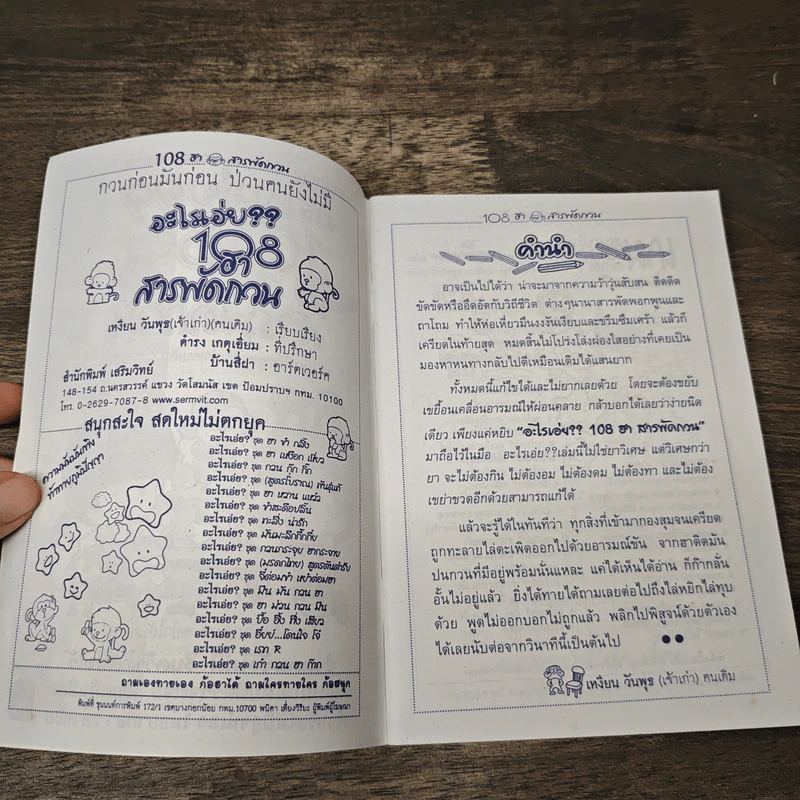 108 ฮา สารพัดกวน
กวนก่อนมันก่อน ป่วนคนยังไม่มี
อะไรเอ่ย??
108
ฮา
สารพัดกวน
เหงี่ยน วันพุธ(เจ้าเก่า)(คนเดิม) : เรียบเรียง
ดำรง เกตุเอี่ยม : ที่ปรึกษา
บ้านสี่ฝา : อาร์ตเวอร์ค
สำนักพิมพ์ เสริมวิทย์
148-154 ถ.นครสวรรค์ แขวง วัดโสมนัส เขต ป้อมปราบฯ กทม. 10100
โทร. 0-2629-7087-8 www.sermvit.com
สนุกสะใจ สดใหม่ไม่ตกยุค
ท้าทายภูมิปัญญา
อะไรเอ่ย? ชุด ฮา ขำ กลิ้ง
อะไรเอ่ย? ชุด ฮา
อะไรเอ่ย? ชุด กวน กุ๊ก กิ๊ก
อะไรเอ่ย? ชุด (สูตรโบราณ) พันธุ์แท้
อะไรเอ่ย? ชุด ฮา
อะไรเอ่ย? ชุด
อะไรเอ่ย? ชุด ทะลึ่ง น่ารัก
อะไรเอ่ย? ชุด
อะไรเอ่ย? ชุด กวนกระจุย ฮากระจาย
อะไรเอ่ย? ชุด (มรดกไทย) สูตรต้นตำรับ
อะไรเอ่ย? ชุด
อะไรเอ่ย? ชุด มึน มัน กวน ฮา
อะไรเอ่ย? ชุด ฮา ม่วน กวน มึน
อะไรเอ่ย? ชุด
อะไรเอ่ย? ชุด
อะไรเอ่ย? ชุด เรท R
อะไรเอ่ย? ชุด เก๋า กวน ฮา ก๊าก
ถามเองทายเอง ก้อฮาได้ ถามใครทายใคร ก้อสนุก
พิมพ์ที่ ขุนนนท์การพิมพ์ 172/1 เขตบางกอกน้อย กทม.10700 พนิดา เตี่ยงวิริยะ ผู้พิมพ์ผู้โฆษณา
108 ฮา สารพัดกวน
คำนำ
อาจเป็นไปได้ว่า น่าจะมาจากความว้าวุ่นสับสน ติดติด
ขัดขัดหรืออึดอัดกับวิถีชีวิต ต่างๆนานาสารพัดพอกพูนและ
ถาโถม ทำให้ห่อเหี่ยวมึนงงงันเงียบและขรึมซึมเศร้า แล้วก็
เครียดในท้ายสุด หมดสิ้นไม่โปร่งโล่งผ่องใสอย่างที่เคยเป็น
มองหาหนทางกลับไปดีเหมือนเดิมได้แสนยาก
ทั้งหมดนี้แก้ไขได้และไม่ยากเลยด้วย โดยจะต้องขยับ
เขยื้อนเคลื่อนอารมณ์ให้ผ่อนคลาย กล้าบอกได้เลยว่าง่ายนิด
เดียว เพียงแค่หยิบ “อะไรเอ่ย?? 108 ฮา สารพัดกวน”
มาถือไว้ในมือ อะไรเอ่ย??เล่มนี้ไม่ใช่ยาวิเศษ แต่วิเศษกว่า
ยา จะไม่ต้องกิน ไม่ต้องอม ไม่ต้องดม ไม่ต้องทา และไม่ต้อง
เขย่าขวดอีกด้วยสามารถแก้ได้
แล้วจะรู้ได้ในทันทีว่า ทุกสิ่งที่เข้ามากองสุมจนเครียด
ถูกทะลายไล่ตะเพิดออกไปด้วยอารมณ์ขัน จากฮาดิดมัน
ปนกวนที่มีอยู่พร้อมนั่นแหละ แค่ได้เห็นได้อ่าน ก็ก๊ากกลั้น
อั้นไม่อยู่แล้ว ยิ่งได้ทายได้ถามเลยต่อไปถึงไล่หยิกไล่ทุบ
ด้วย พูดไม่ออกบอกไม่ถูกแล้ว พลิกไปพิสูจน์ด้วยตัวเอง
ได้เลยนับต่อจากวินาทีนี้เป็นต้นไป
เหงี่ยน วันพุธ (เจ้าเก่า) คนเดิม